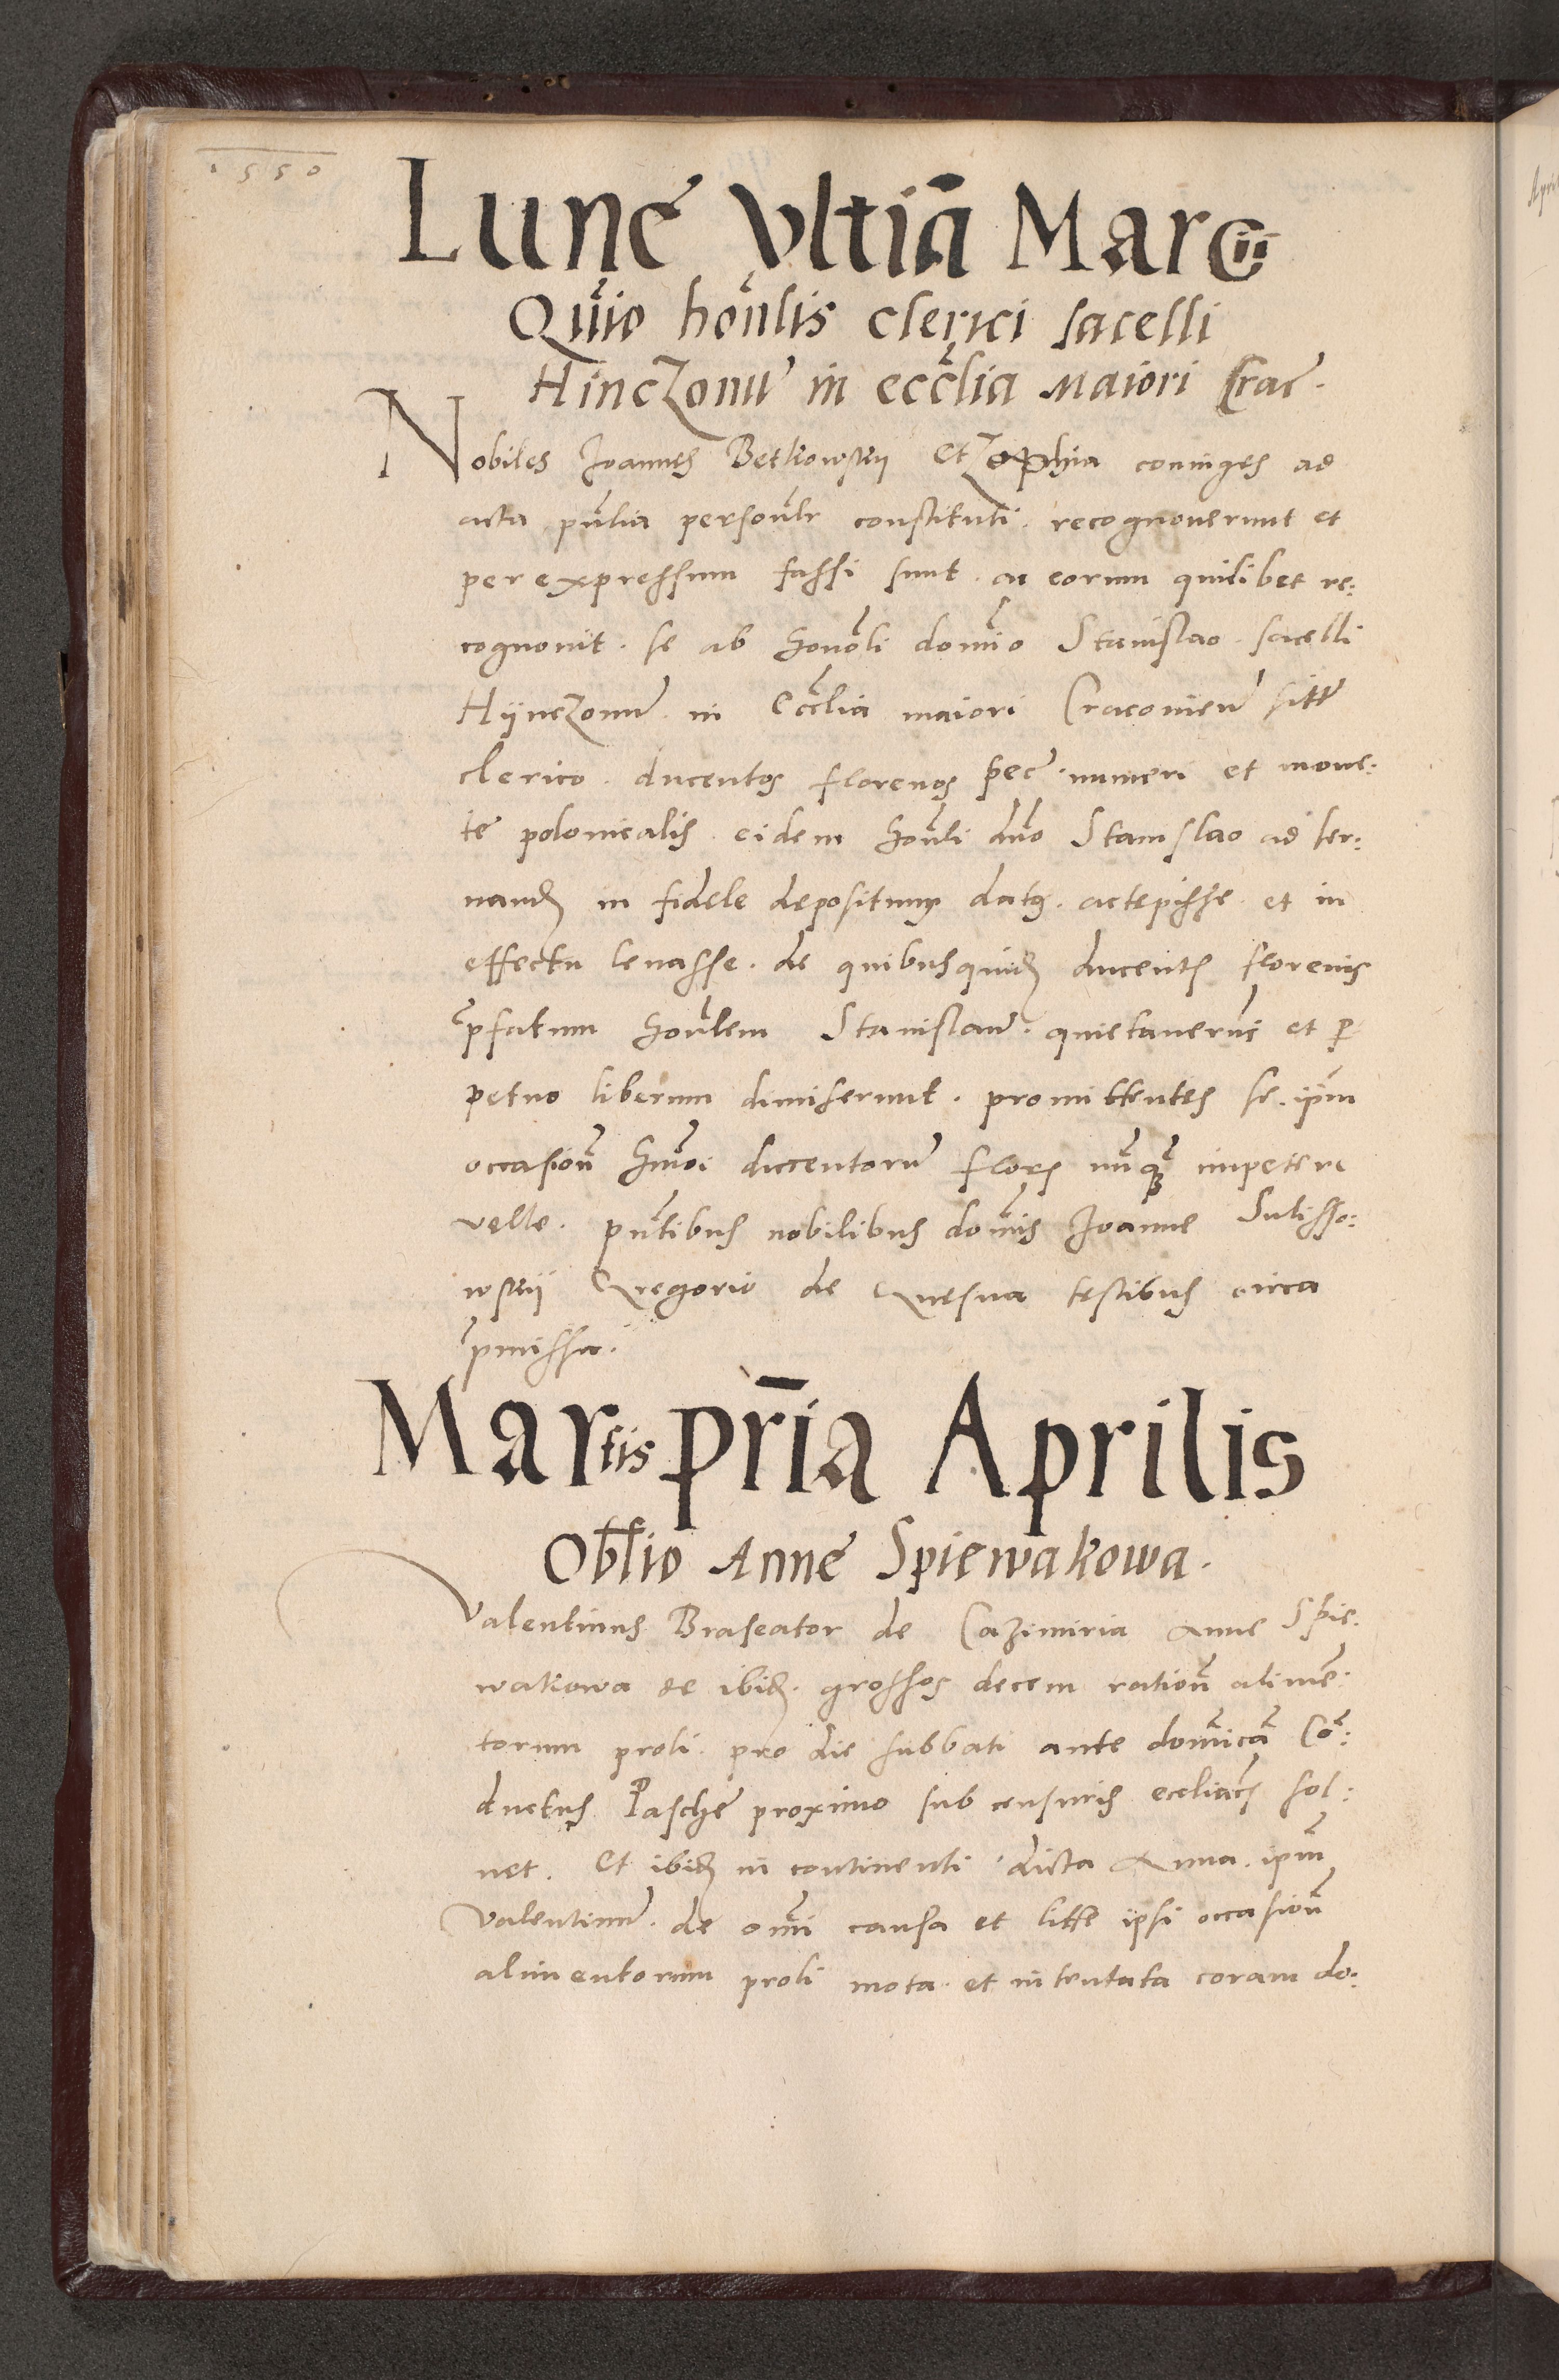 1550
Lune Vltiā Marcii
Qu̓io hon̓lis clerici sacelli
Hinczonu̓ in eccl̓ia Maiori Crac̓.
Nobiles Joannes Betkowskij Et Zophia coniuges ad
acta pn̓tia person̓lr constituti. recognouerunt et
per expressum fassi sunt. ac eorum quilibet re:
cognouit. se ab honor̓li domi̓o Stanislao. sacelli
Hÿnczonu̓ in Eccl̓ia maiori Cracovien̓ sitt̓
clerico. ducentos florenos pec̓. numeri et mone:
te̓ polonicalis. eidem hon̓li dn̓o Stanislao ad ser:
uand̓ in fidele depositum dat9. accepisse. et in
effectu leuasse. de quibusquid̓ ducent̓ florenis
p̓fatum hon̓lem Stanislau̓. quietauerūt et p̱
petuo liberum dimiserunt. promittentes se. ip̄m
occasion̄ hm̄oi ducentoru̓ flor̓ nūq̄ impetere
velle. pn̄tibus nobilibus domīs Joanne Sulisso:
wskij Gregorio de testibus circa
p̓missa.
Martis prīa Aprilis
Obl̄io Anne̓ Spiewakowa.
Valentinus Braseator de Cazimiria Anne Spie:
wakowa de ibid̓. grossos decem ration̄ alimē:
torum proli. pro die sabbati ante domīcā Cō:
ductus Pasche̓ proximo sub censuris eccliac̓ sol:
uet. Et ibid̓ in continenti dicta Anna. ip̄m
Valentinu̓. de om̄i causa et litte ipsi occasion̄
alimentorum proli mota. et intentata coram do: